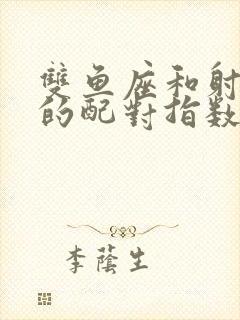 雙魚座和射
的配對指数
李蔭生